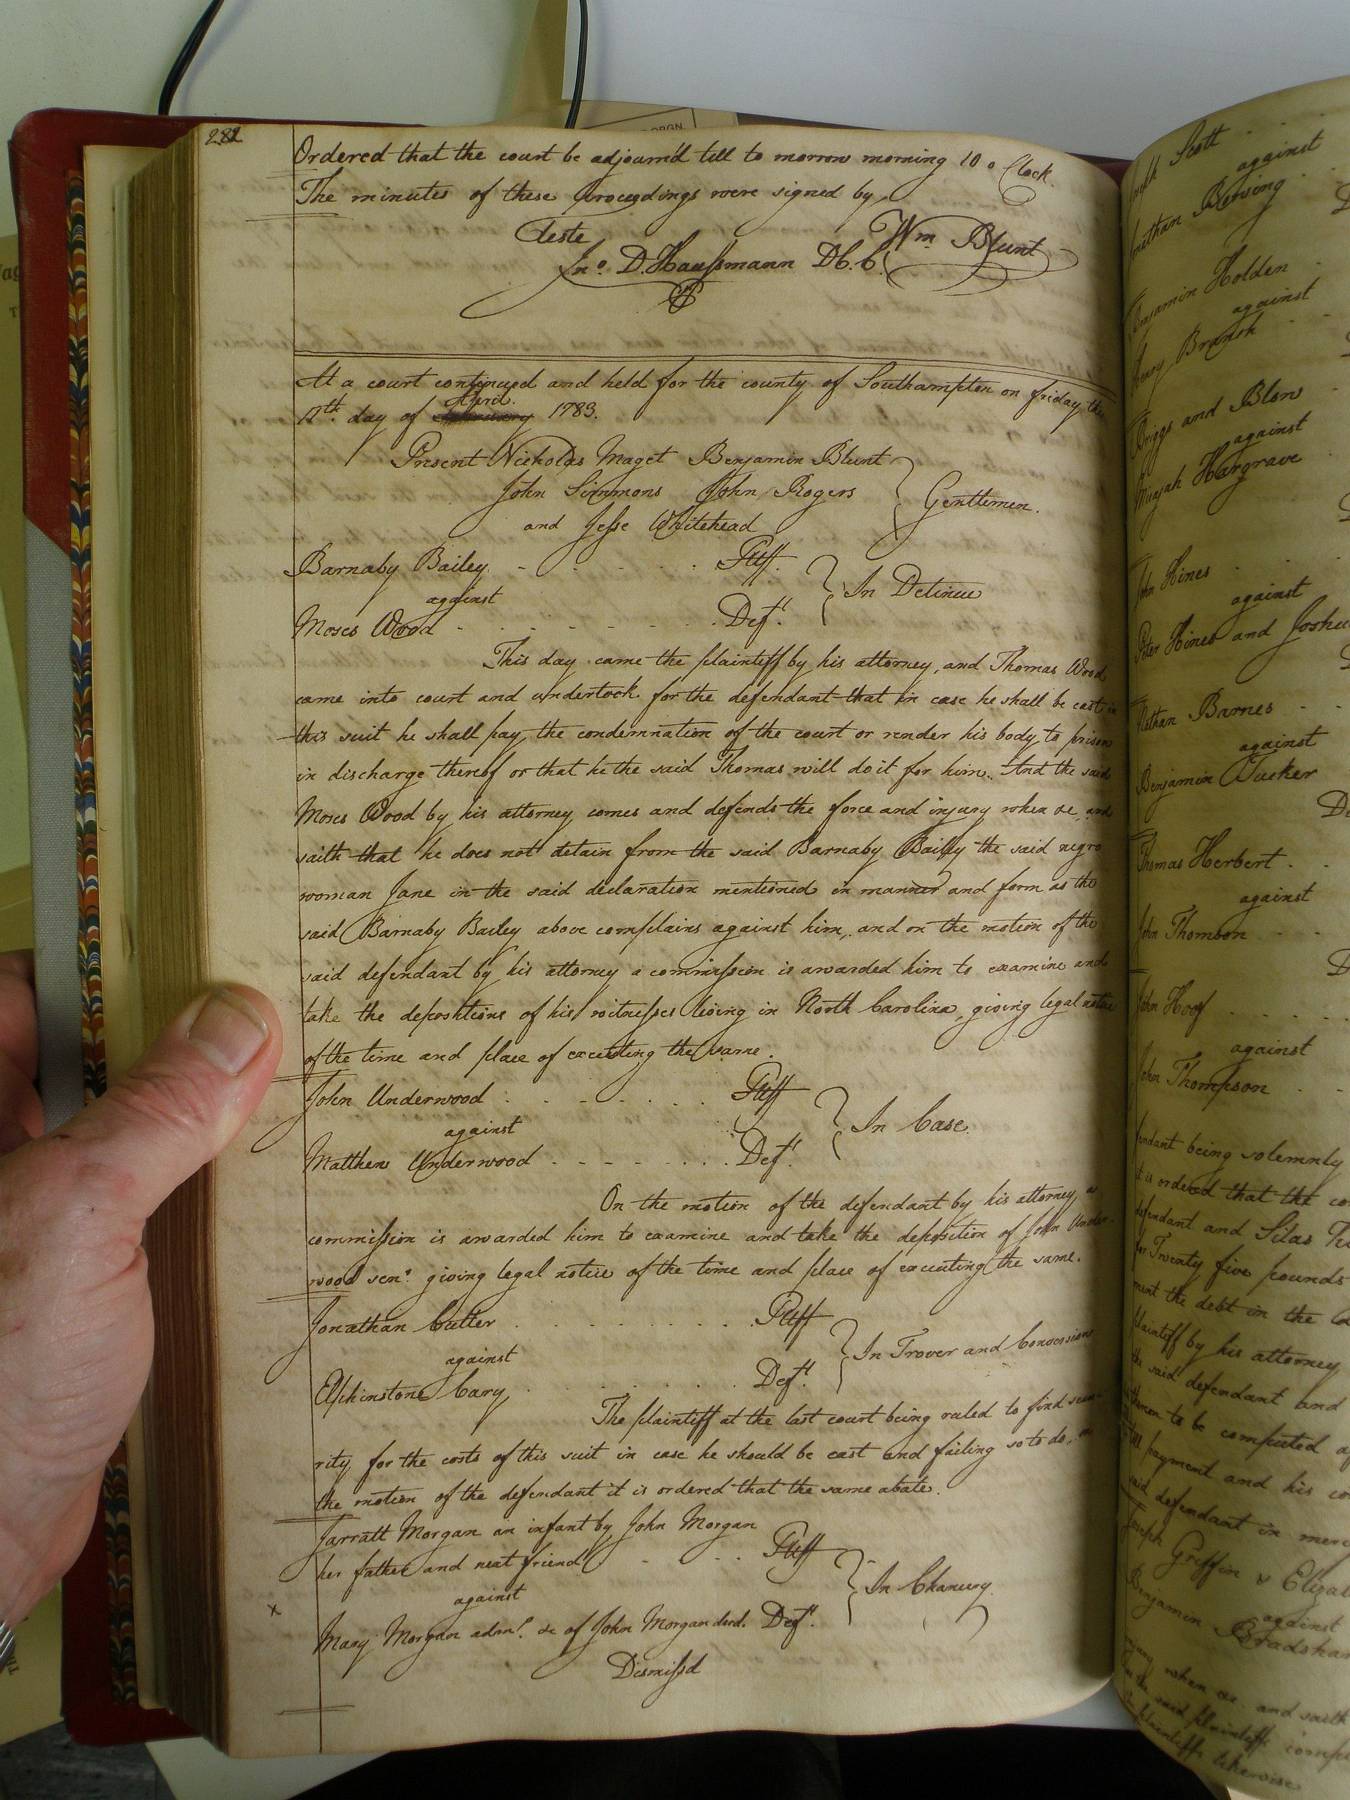 282
Ordered that the court be adjourn'd till to morrow morning 10 o Clock.
The minutes of these proceedings were signed by
Teste Wm Blunt
Jno. D. Haussmann D C. C.
At a court continued and held for the county of Southampton on friday the
April
day of 1783.
Present Nicholas Maget Benjamin Blunt
John Simmons John Rogers Gentlemen.
and Jesse Whitehead
Barnaby Bailey Pltff.
against In Detinue
Moses Wood Deft.
This day came the plaintiff by his attorney, and Thomas Wood
came into court and undertook for the defendant that in case he shall be cast in
this suit he shall pay the condemnation of the court or render his body to prison
in discharge thereof or that he the said Thomas will do it for him. And the said
Moses Wood by his attorney comes and defends the force and injury when &c. and
saith that he does not detain from the said Barnaby Bailey the said negro
woman Jane in the said declaration mentioned in manner and form as the
said Barnaby Bailey above complains against him, and on the motion of the
said defendant by his attorney a commission is awarded him to examine and
take the depositions of his witnesses living in North Carolina, giving legal notice
of the time and place of executing the same.
John Underwood Pltff
against In Case
Matthew Underwood Deft.
On the motion of the defendant by his attorney, a
commission is awarded him to examine and take the deposition of John Under-
wood senr. giving legal notice of the time and place of executing the same.
Jonathan Cutler Pltff
against In Trover and Conversion
Elphinstone Cary Deft.
The plaintiff at the last court being ruled to find secu-
rity for the costs of this suit in case he should be cast and failing so to do, on
the motion of the defendant it is ordered that the same abate.
Jarratt Morgan an infant by John Morgan
her father and next friend Pltff
against In Chancery
x
Mary Morgan admr. &c of John Morgan decd. Deft.
Dismissd
Scott
against
Jonathan Bersing
Benjamin Holden
against
Henry Branch
Briggs and Blow
against
Micajah Hargrave
John Hines
against
Peter Hines and Joshua
Nathan Barnes
against
Benjamin Tucker
Thomas Herbert
against
John Thomson
John Hoof
against
John Thompson
fendant being solemnly
it is ordered that the co
defendant and Silas
for Twenty five pounds
ment the debt in the
plaintiff by his attorney
the said defendant and
thereon to be computed
till payment and his co
said defendant in merc
Joseph Griffin & Eliza
against
Benjamin Bradshaw
when &c. and saith
the said plaintiffs
plaintiffs likewise